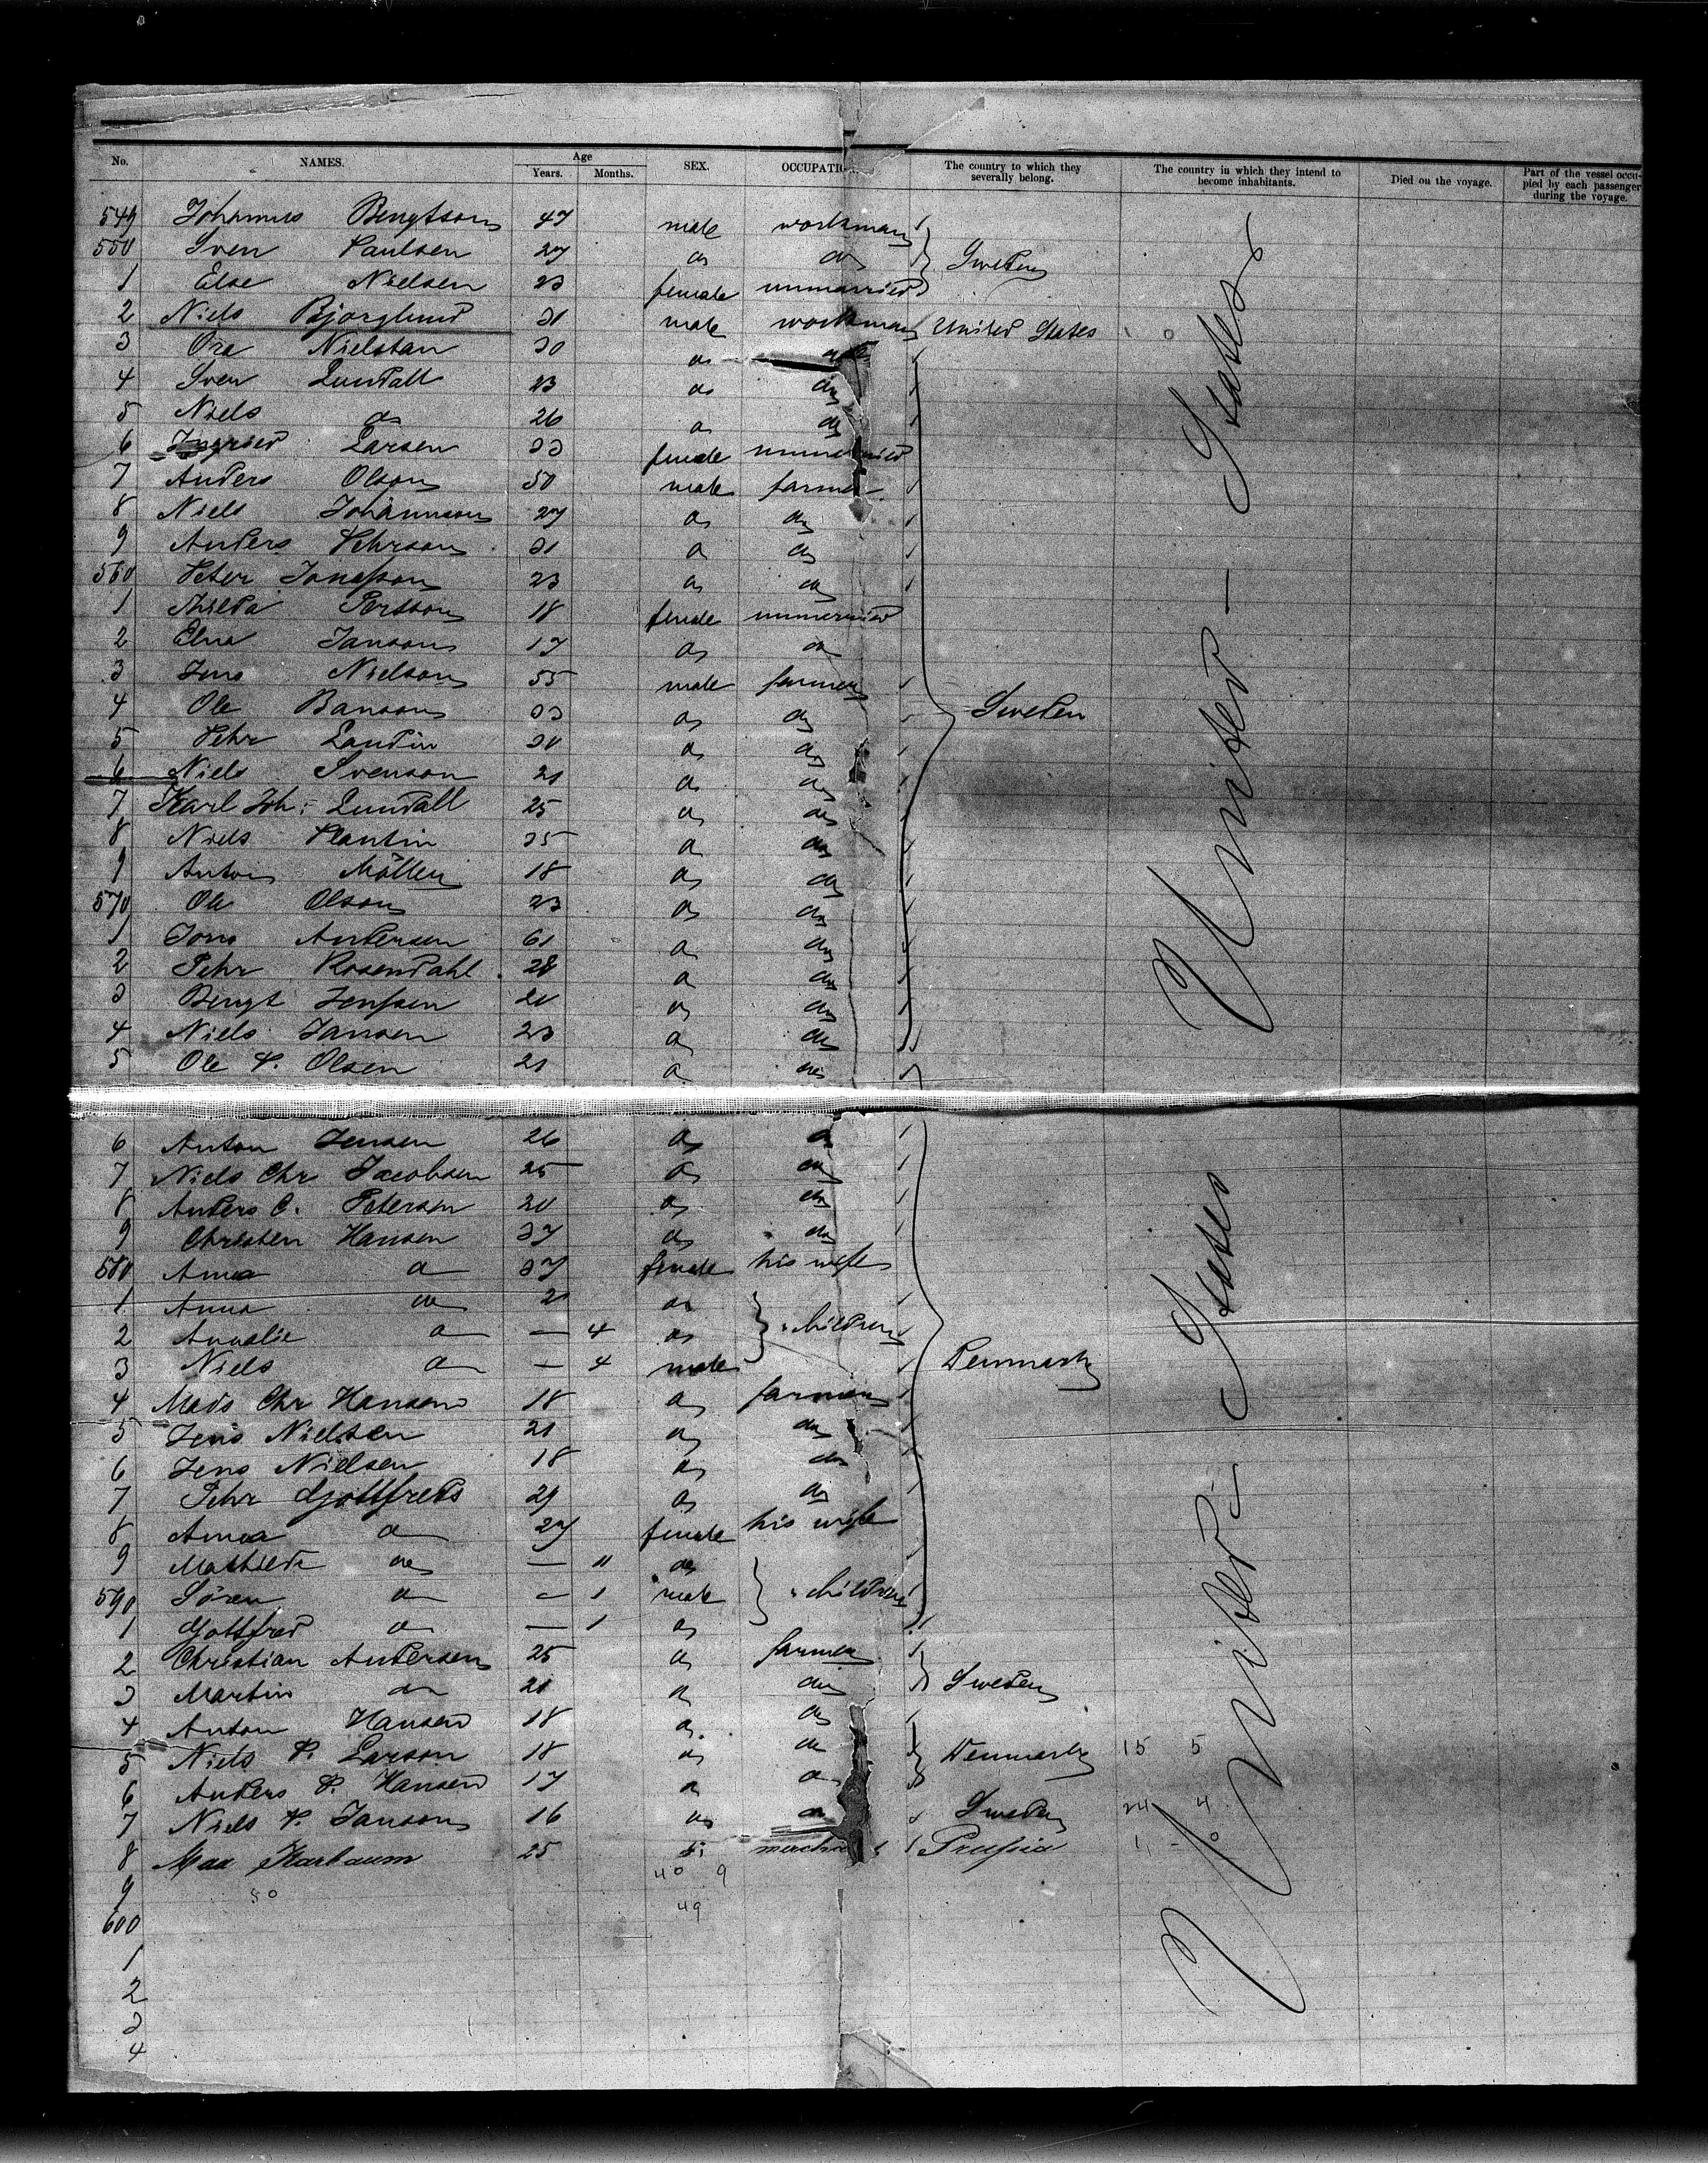 No. NAMES. Age Years. Months. SEX. OCCUPATIO The country to which they severally belong. The country in which they intend to become inhabitants. Died on the voyage. Part of the vessel occupied by each passenger during the voyage.
549 Johannes Bengtson 47 male workman
550 Sven Paulsen 27 do do Sweden
1 Else Nielsen 23 female unmarried
2 Niels Bjorglund 31 male workman United States 1 0
3 Ore Nielstan 30 do do
4 Sven Lundall 23 do do
5 Niels do 26 do do
6 Larsen 33 female unmarried
7 Anders Olson 50 male farmer
8 Niels Johannson 27 do do
9 Anders Pehrson 31 do do
560 Peter Jonasson 23 do do
1 Persson 18 female unmarried
2 Elna Janson 17 do do
3 Jens Nielson 55 male farmer
4 Ole Banson 33 do do Sweden
5 Pehr Landin 30 do do
6 Niels Svenson 21 do do
7 Karl Joh: Lundall 25 do do
8 Niels Plantin 35 do do
9 Anton Möller 18 do do
570 Ole Olson 23 do do
1 Jons Andersen 61 do do
2 Pehr Rosendahl 28 do do
3 Bengt Jenssen 20 do do
4 Niels Jansen 23 do do
5 Ole P. Olsen 21 do do
United — States
6 Anton Jensen 26 do do
7 Niels Chr Jacobsen 25 do do
8 Anders C. Petersen 20 do do
9 Christen Hansen 37 do do
580 Anna do 37 female his wife
1 Anna do 2 do
2 Annalie do — 4 do children
3 Niels do — 4 male Denmark
4 Mads Chr Hansen 18 do farmer
5 Jens Nielsen 21 do do
6 Jens Nielsen 18 do do
7 Pehr Gottfreds 29 do do
8 Anna do 27 female his wife
9 Mathilde do — 11 do
590 Sören do — 1 male children
1 Gottfred do — 1 do
2 Christian Andersen 25 do farmer
3 Martin do 21 do do Sweden
4 Anton Hansen 18 do do
5 Niels P. Larson 18 do do Denmark 15 5
6 Anders P. Hansen 17 do do
7 Niels P. Janson 16 do do Sweden 24 4
8 Max Karbaum 25 do Prussia 1 - 0
United — States
40 9
9 50
49
600
1
2
3
4